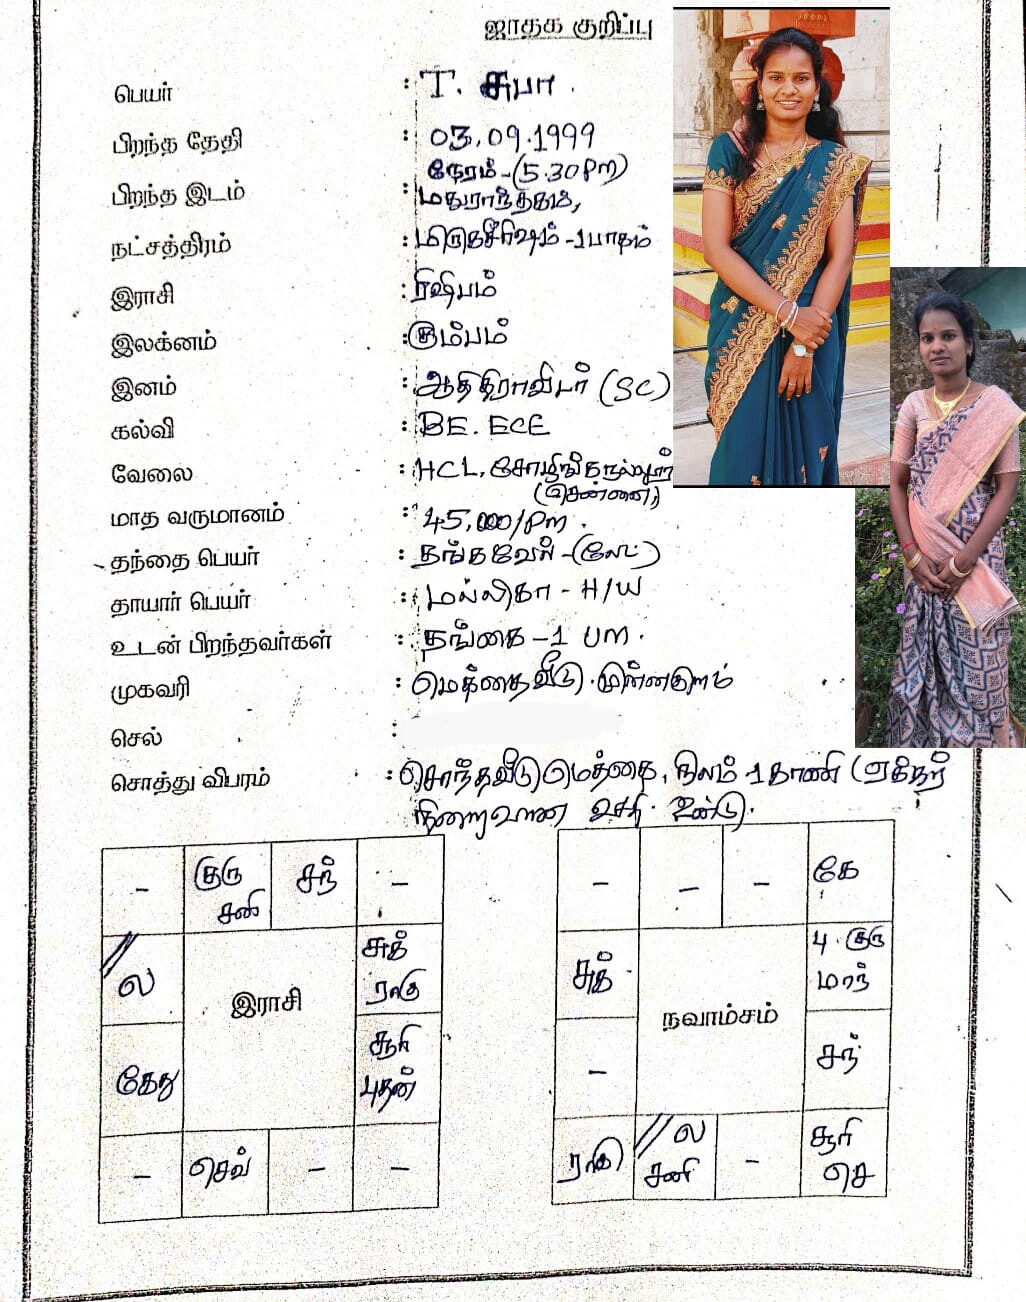 ஜாதக குறிப்பு
பெயர் : T. சுபா.
பிறந்த தேதி : 03.09.1999
நேரம் - (5.30 Pm)
பிறந்த இடம் : மதுராந்தகம்,
நட்சத்திரம் : மிருகசீரிஷம் - 1 பாதம்
இராசி : ரிஷிபம்
இலக்னம் : கும்பம்
இனம் : ஆதிதிராவிடர் (SC)
கல்வி : BE. ECE
வேலை : HCL, சோழிங்கநல்லூர்
(சென்னை)
மாத வருமானம் : 45,000/Pm.
தந்தை பெயர் : தங்கவேல் - (லேட்)
தாயார் பெயர் : மல்லிகா - H/W
உடன் பிறந்தவர்கள் : தங்கை - 1
முகவரி : மெத்தை வீடு. முன்னகுளம்
செல் :
சொத்து விபரம் : சொந்தவீடு மெத்தை, நிலம் 1 காணி
நிறைவான வசதி உண்டு.
- குரு சனி சந் -
ல சுக் ராகு
இராசி
கேது சூரி புதன்
- செவ் - -
- - - கே
சுக் பு. குரு மாந்
நவாம்சம்
- சந்
ராகு ல சனி - சூரி செ